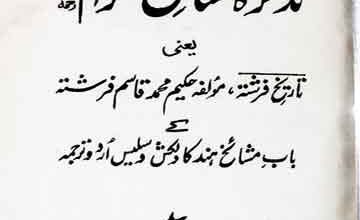 تذکرہ مشائخ کرام رحمہم
یعنی
تاریخ فرشتہ، مؤلفہ حکیم محمد قاسم فرشتہ
کے
باب مشائخ ہند کا دلکش و سلیس اُردو ترجمہ